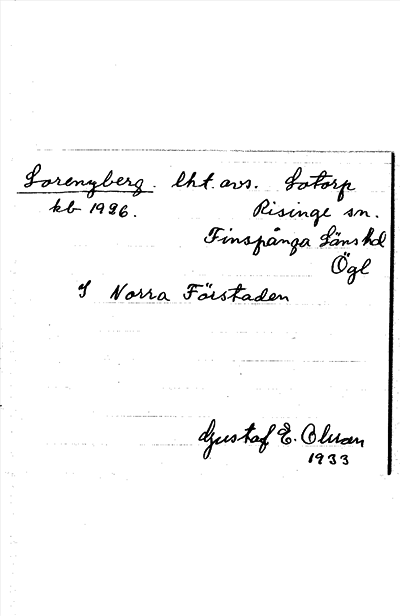 Lorenzberg. lht. avs. Lotorp
kb 1926. Risinge sn.
Finspånga Läns hd
Ögl
I Norra Förstaden
Gustaf E. Olsson
1933